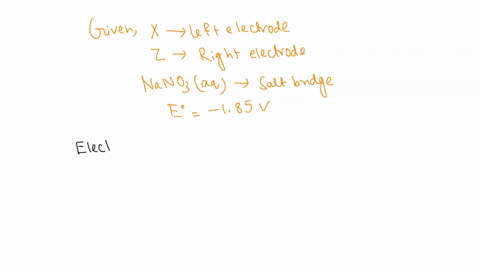 Given, X → left electrode
Z → Right electrode
NaNO3(aq) → Salt bridge
E° = -1.85 V
Elecl